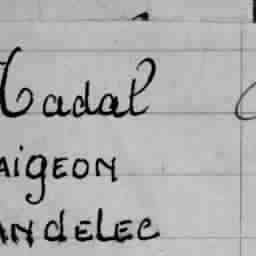 Cadal
AIGEON
ANdELEC